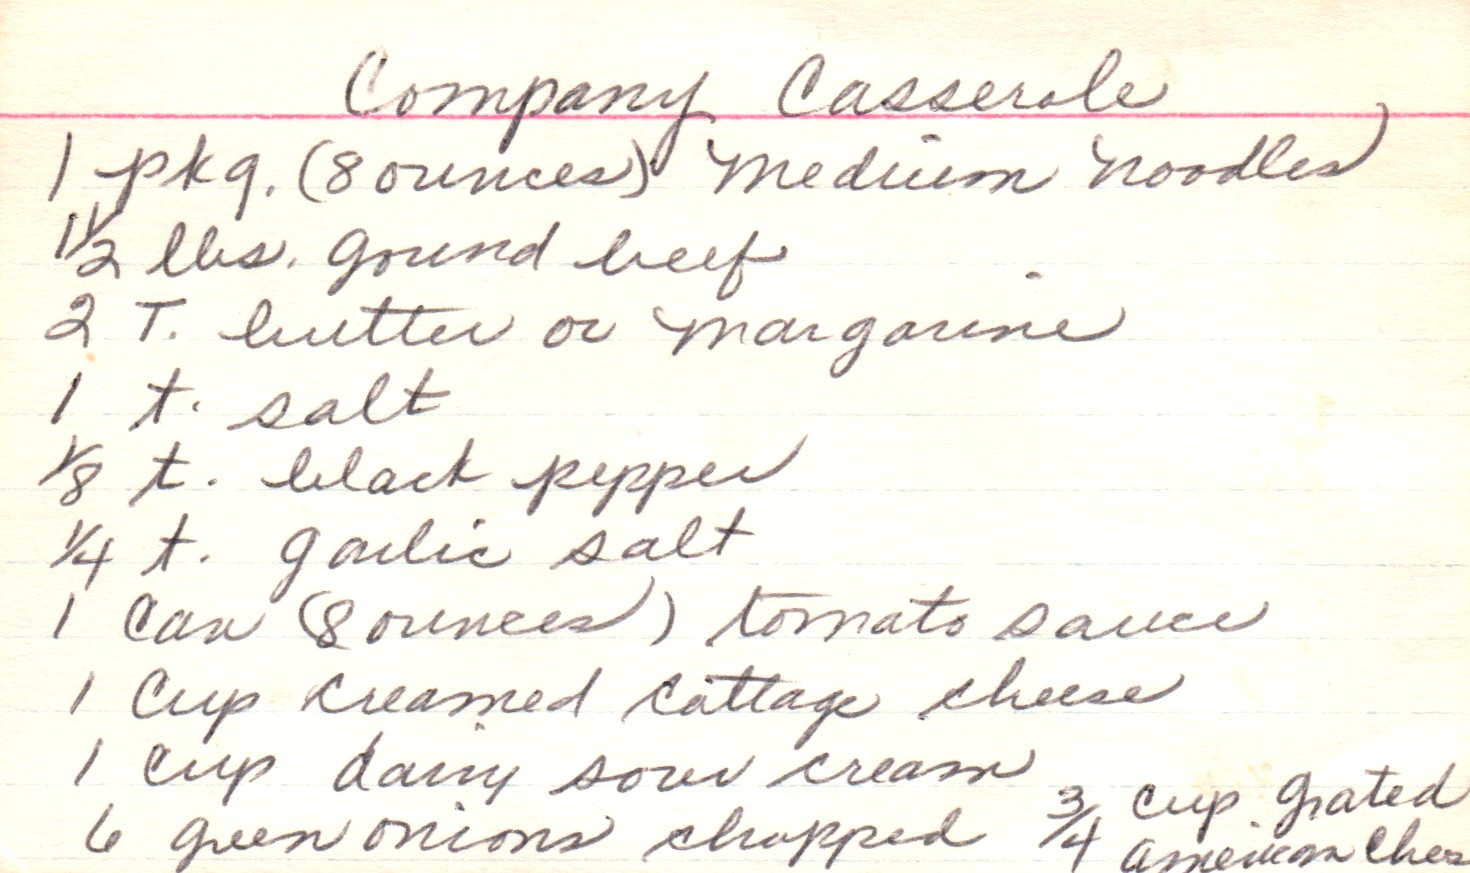 Company Casserole
1 pkg. (8 ounces) Medium Noodles
1 1/2 lbs. ground beef
2 T. butter or margarine
1 t. salt
1/8 t. black pepper
1/4 t. garlic salt
1 can (8 ounces) tomato sauce
1 cup creamed cottage cheese
1 cup dairy sour cream
6 green onions chopped
3/4 cup grated
american Chees